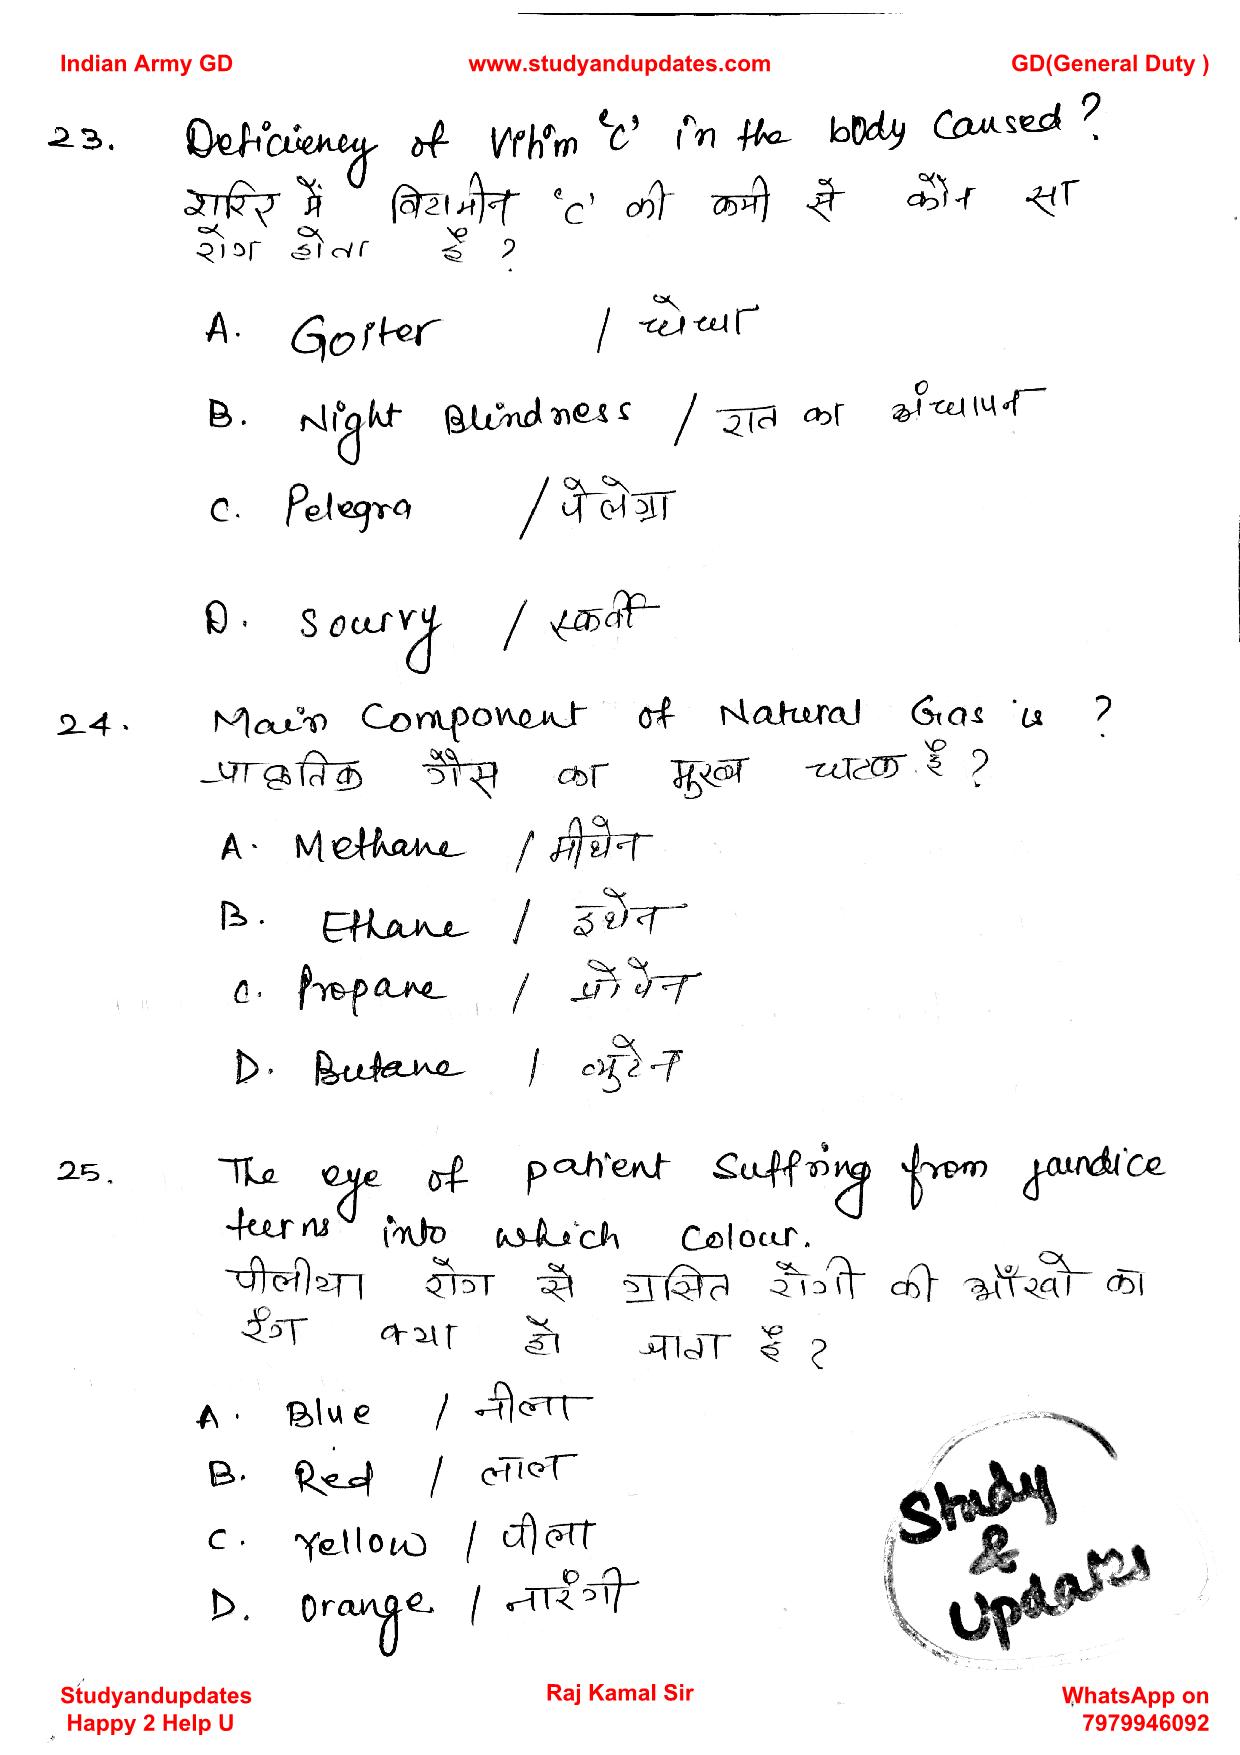 Indian Army GD www.studyandupdates.com GD(General Duty )
23. Deficiency of Vitmin 'C' in the body Caused ?
शरिर में विटामीन 'C' की कमी से कौन सा
रोग होता है ?
A. Goiter / घेघा
B. Night Blindness / रात का अंधापन
C. Pelegra / पेलेग्रा
D. Scurvy / स्कर्वी
24. Main Component of Natural Gas is ?
प्राकृतिक गैस का मुख्य घटक है ?
A. Methane / मीथेन
B. Ethane / इथेन
C. Propane / प्रोपेन
D. Butane / ब्युटेन
25. The eye of patient Suffring from jaundice
turns into which Colour.
पीलीया रोग से ग्रसित रोगी की आँखो का
रंग क्या हो जाता है ?
A. Blue / नीला
B. Red / लाल
C. Yellow / पीला
D. Orange / नारंगी
Study
&
Updates
Studyandupdates Raj Kamal Sir WhatsApp on
Happy 2 Help U 7979946092